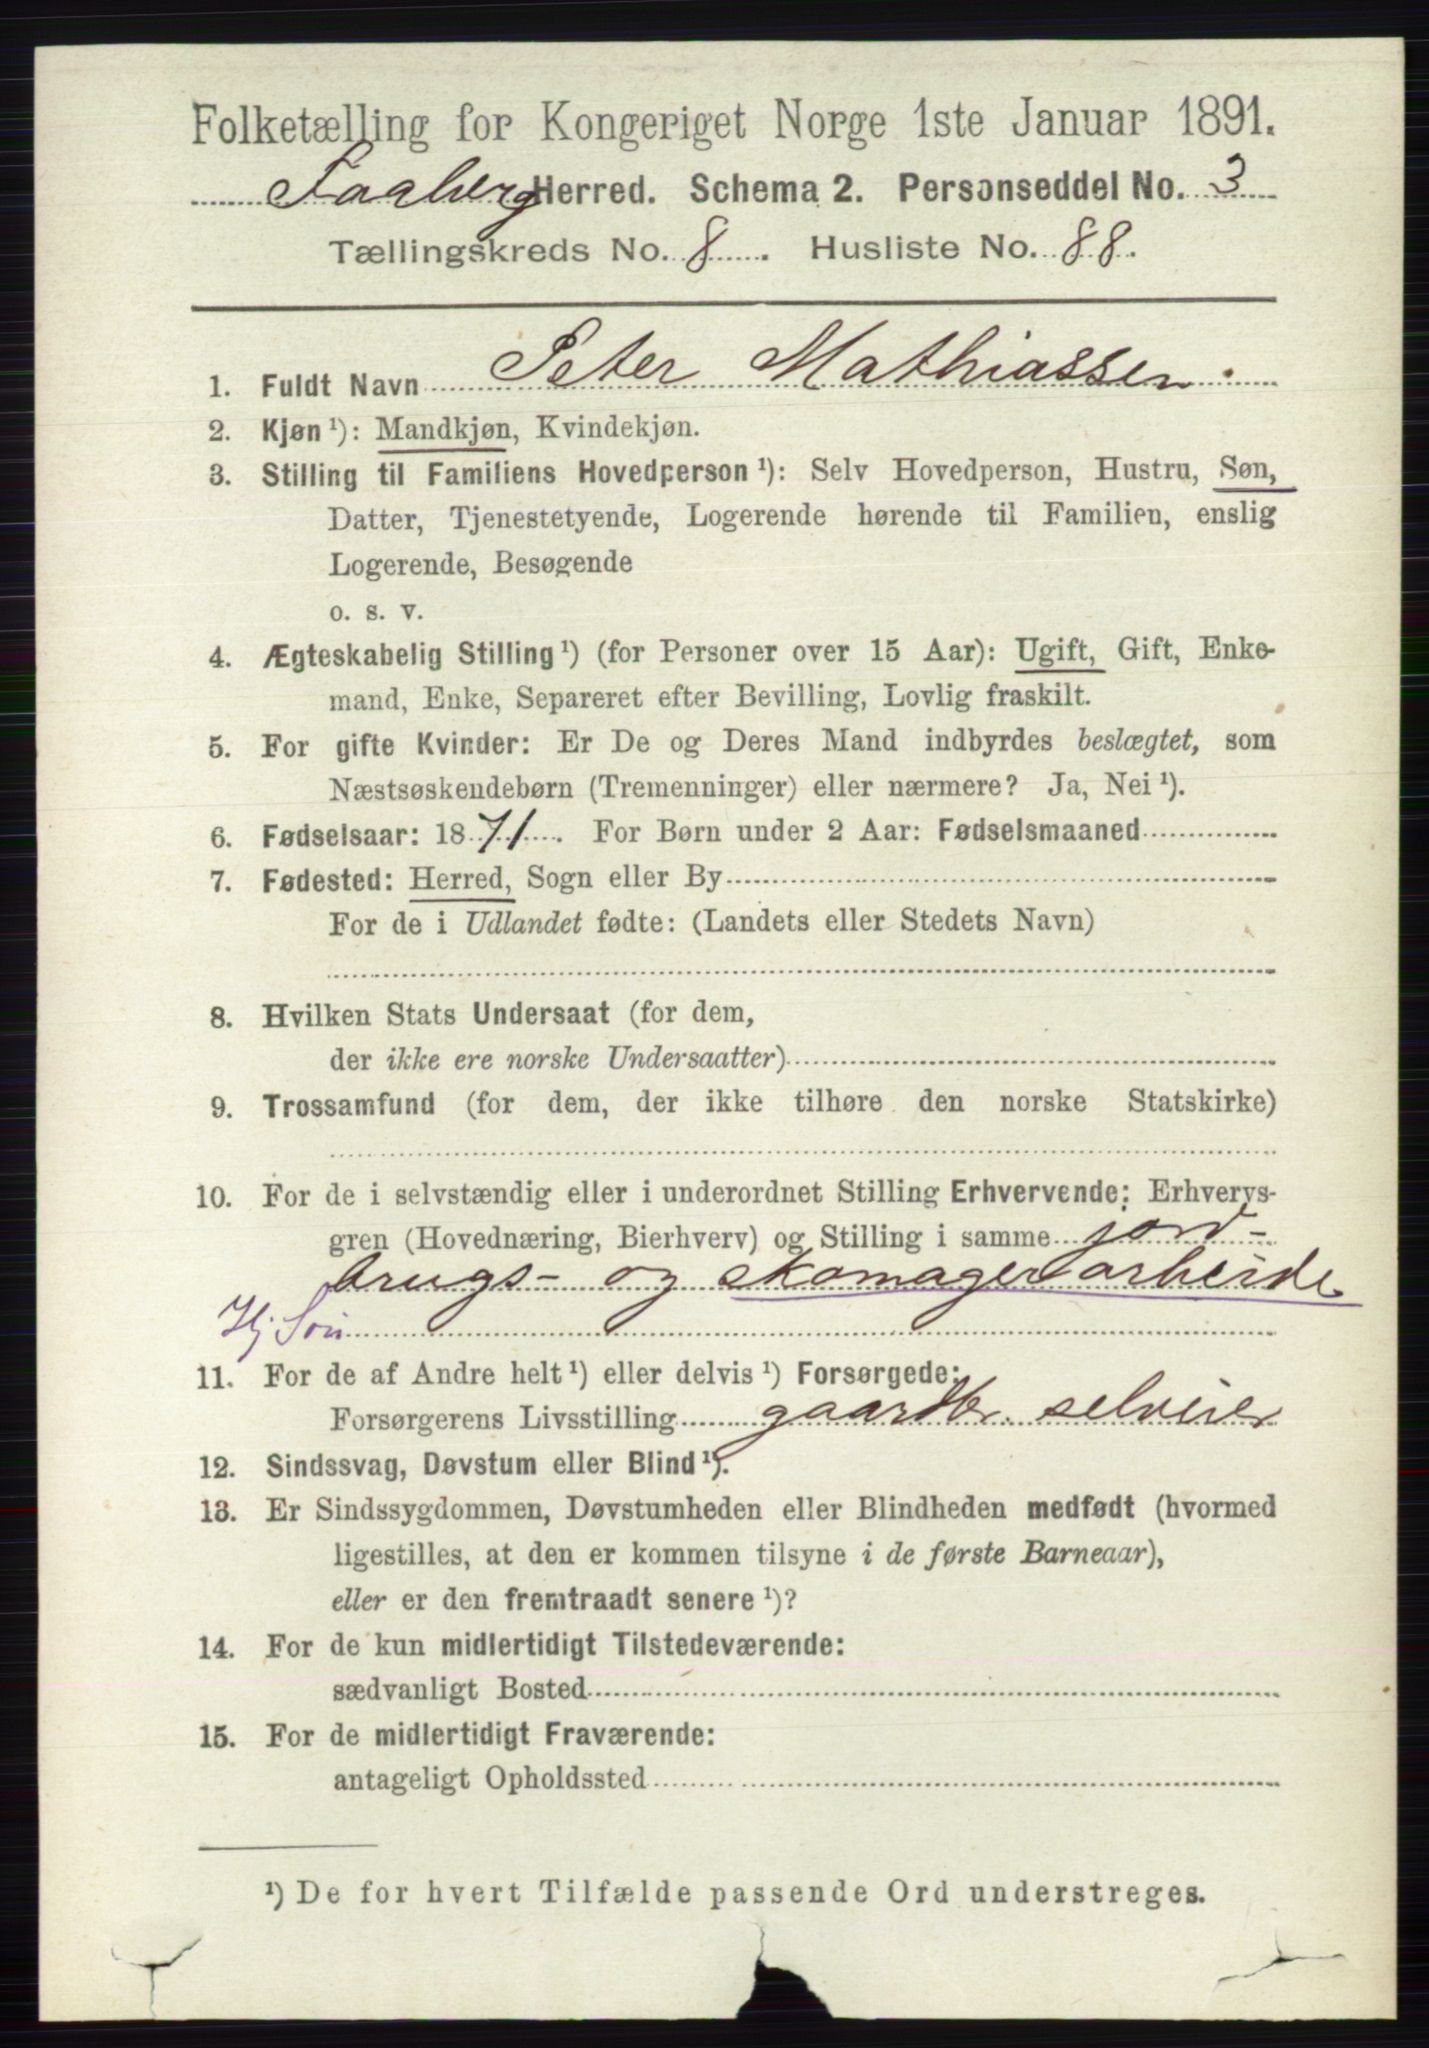 Folketælling for Kongeriget Norge 1ste Januar 1891.
Faaberg Herred. Schema 2. Personseddel No. 3
Tællingskreds No. 8. Husliste No. 88.
1. Fuldt Navn Peter Mathiassen.
2. Kjøn ¹): Mandkjøn, Kvindekjøn.
3. Stilling til Familiens Hovedperson ¹): Selv Hovedperson, Hustru, Søn,
Datter, Tjenestetyende, Logerende hørende til Familien, enslig
Logerende, Besøgende
o. s. v.
4. Ægteskabelig Stilling ¹) (for Personer over 15 Aar): Ugift, Gift, Enke-
mand, Enke, Separeret efter Bevilling, Lovlig fraskilt.
5. For gifte Kvinder: Er De og Deres Mand indbyrdes beslægtet, som
Næstsøskendebørn (Tremenninger) eller nærmere? Ja, Nei ¹).
6. Fødselsaar: 1871. For Børn under 2 Aar: Fødselsmaaned
7. Fødested: Herred, Sogn eller By
For de i Udlandet fødte: (Landets eller Stedets Navn)
8. Hvilken Stats Undersaat (for dem,
der ikke ere norske Undersaatter)
9. Trossamfund (for dem, der ikke tilhøre den norske Statskirke)
10. For de i selvstændig eller i underordnet Stilling Erhvervende: Erhvervs-
gren (Hovednæring, Bierhverv) og Stilling i samme jord-
brugs- og skomagerarbeide
Hj Søn
11. For de af Andre helt ¹) eller delvis ¹) Forsørgede:
Forsørgerens Livsstilling gaardbr. selveier
12. Sindssvag, Døvstum eller Blind ¹).
13. Er Sindssygdommen, Døvstumheden eller Blindheden medfødt (hvormed
ligestilles, at den er kommen tilsyne i de første Barneaar),
eller er den fremtraadt senere ¹)?
14. For de kun midlertidigt Tilstedeværende:
sædvanligt Bosted
15. For de midlertidigt Fraværende:
antageligt Opholdssted
¹) De for hvert Tilfælde passende Ord understreges.